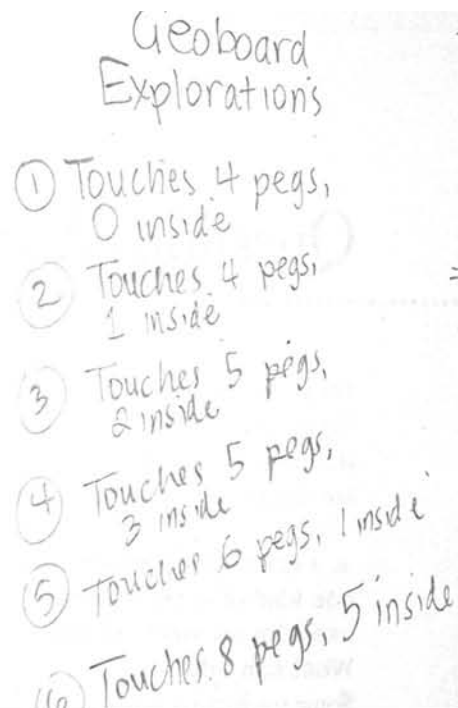 Geoboard
Explorations
① Touches 4 pegs,
0 inside
② Touches 4 pegs,
1 inside
③ Touches 5 pegs,
2 inside
④ Touches 5 pegs,
3 inside
⑤ Touches 6 pegs, 1 inside
⑥ Touches 8 pegs, 5 inside